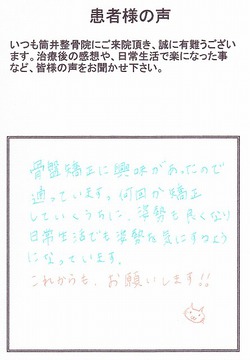 患者様の声
いつも筒井整骨院にご来院頂き、誠に有難うござい
ます。治療後の感想や、日常生活で楽になった事
など、皆様の声をお聞かせ下さい。
骨盤矯正に興味があったので
通っています。何回か矯正
していくうちに、姿勢も良くなり
日常生活でも姿勢を気にするように
になっています。
これからも、お願いします!!